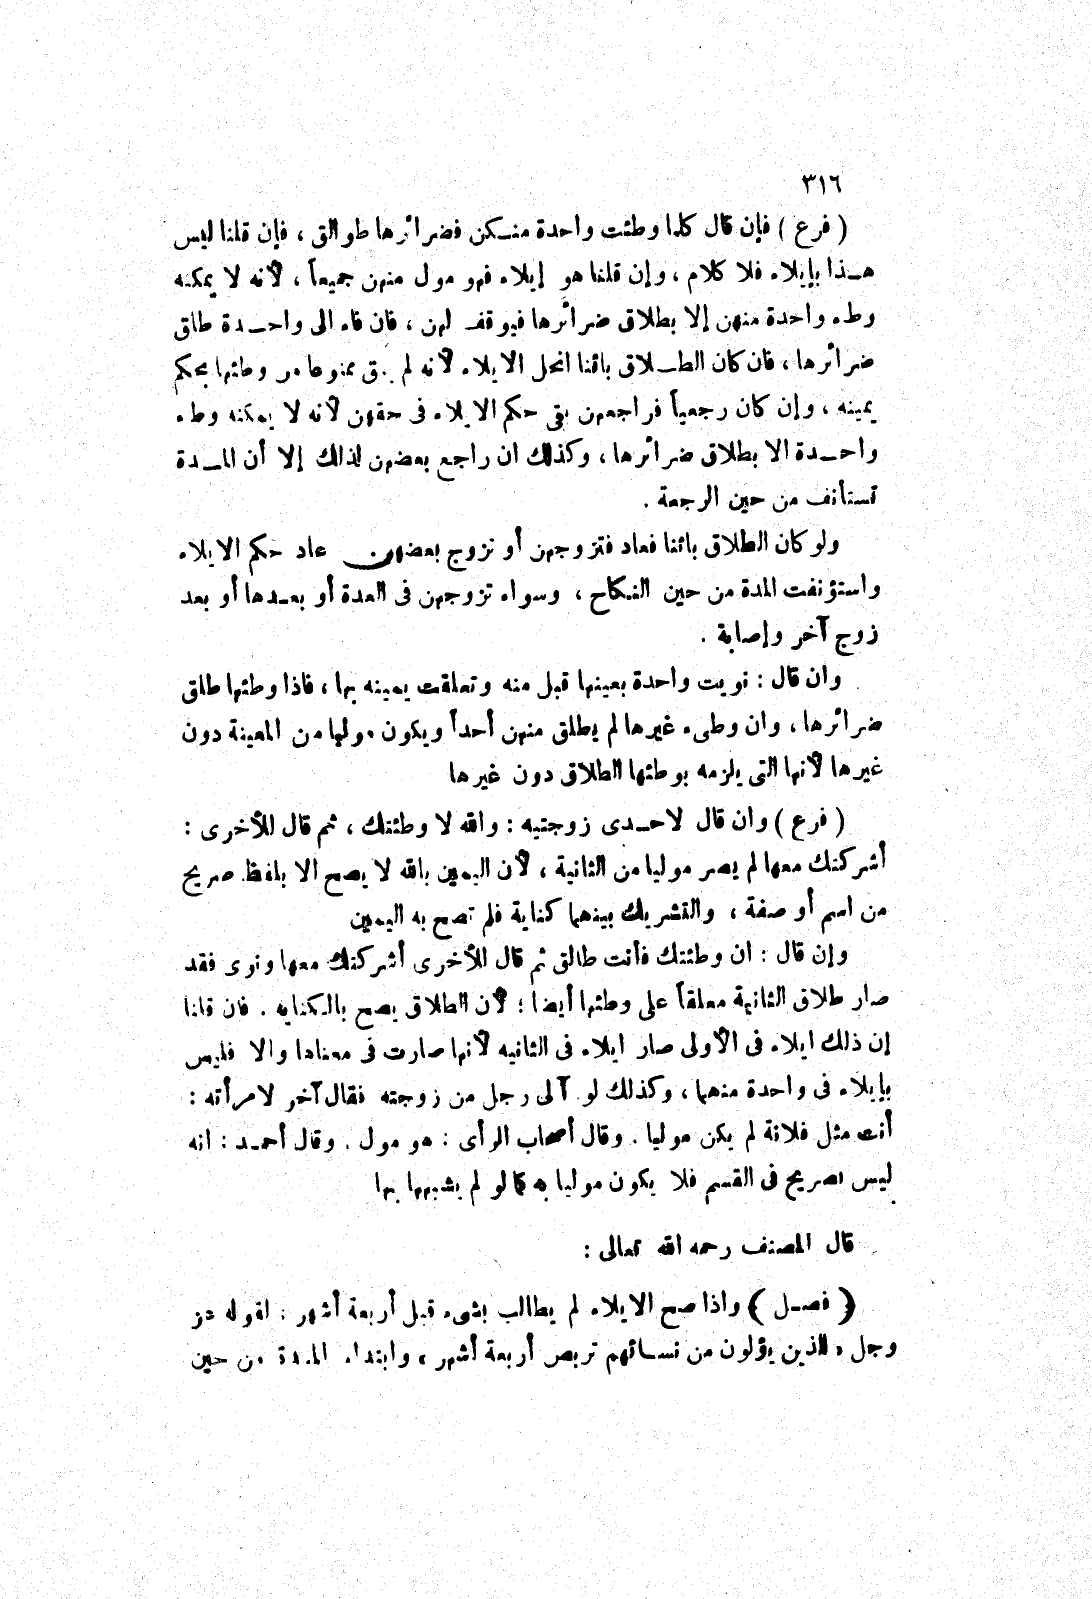 ٣١٦
( فرع ) فإن قال كلما وطئت واحدة منـكن فضرائرها طوالق ، فإن قلنا ليس
هـذا بإيلاء فلا كلام ، وإن قلنا هو إيلاء فهو مول منهن جميعاً ، لأنه لا يمكنه
وطء واحدة منهن إلا بطلاق ضرائرها فيوقف لهن ، فان فاء الى واحـدة طلق
ضرائرها ، فان كان الطـلاق بائنا انحل الايلاء لأنه لم يبق ممنوعا من وطئها بحكم
يمينه ، وإن كان رجعياً فراجعهن بقى حكم الايلاء فى حقهن لأنه لا يمكنه وطء
واحـدة الا بطلاق ضرائرها ، وكذلك ان راجع بعضهن لذلك إلا أن المـدة
تستأنف من حين الرجعة .
ولو كان الطلاق بائنا فعاد فتزوجهن أو تزوج بعضهن عاد حكم الايلاء
واستؤنفت المدة من حين النكاح ، وسواء تزوجهن فى العدة أو بعـدها أو بعد
زوج آخر وإصابة .
وان قال : نويت واحدة بعينها قبل منه وتعلقت يمينه بها ، فاذا وطئها طلق
ضرائرها ، وان وطىء غيرها لم يطلق منهن أحداً ويكون موليا من المعينة دون
غيرها لأنها التى يلزمه بوطئها الطلاق دون غيرها
( فرع ) وان قال لاحـدى زوجتيه : والله لا وطئتك ، ثم قال للأخرى :
أشركتك معها لم يصر موليا من الثانية ، لأن اليمين بالله لا يصح الا بلفظ صريح
من اسم أو صفة ، والتشريك بينهما كناية فلم تصح به اليمين
وإن قال : ان وطئتك فأنت طالق ثم قال للأخرى أشركتك معها ونوى فقد
صار طلاق الثانية معلقاً على وطئها أيضا ؛ لأن الطلاق يصح بالكنايه . فان قلنا
إن ذلك ايلاء فى الأولى صار ايلاء فى الثانيه لأنها صارت فى معناها والا فليس
بإيلاء فى واحدة منهما ، وكذلك لو آلى رجل من زوجته فقال آخر لامرأته :
أنت مثل فلانة لم يكن موليا . وقال أصحاب الرأى : هو مول . وقال أحمـد : انه
ليس بصريح فى القسم فلا يكون موليا به كما لو لم يشبهها بها
قال المصنف رحمه الله تعالى :
( فصـل ) واذا صح الايلاء لم يطالب بشىء قبل أربعة أشهر : لقوله عز
وجل « للذين يؤلون من نسـائهم تربص أربعة أشهر ، وابتداء المدة من حين